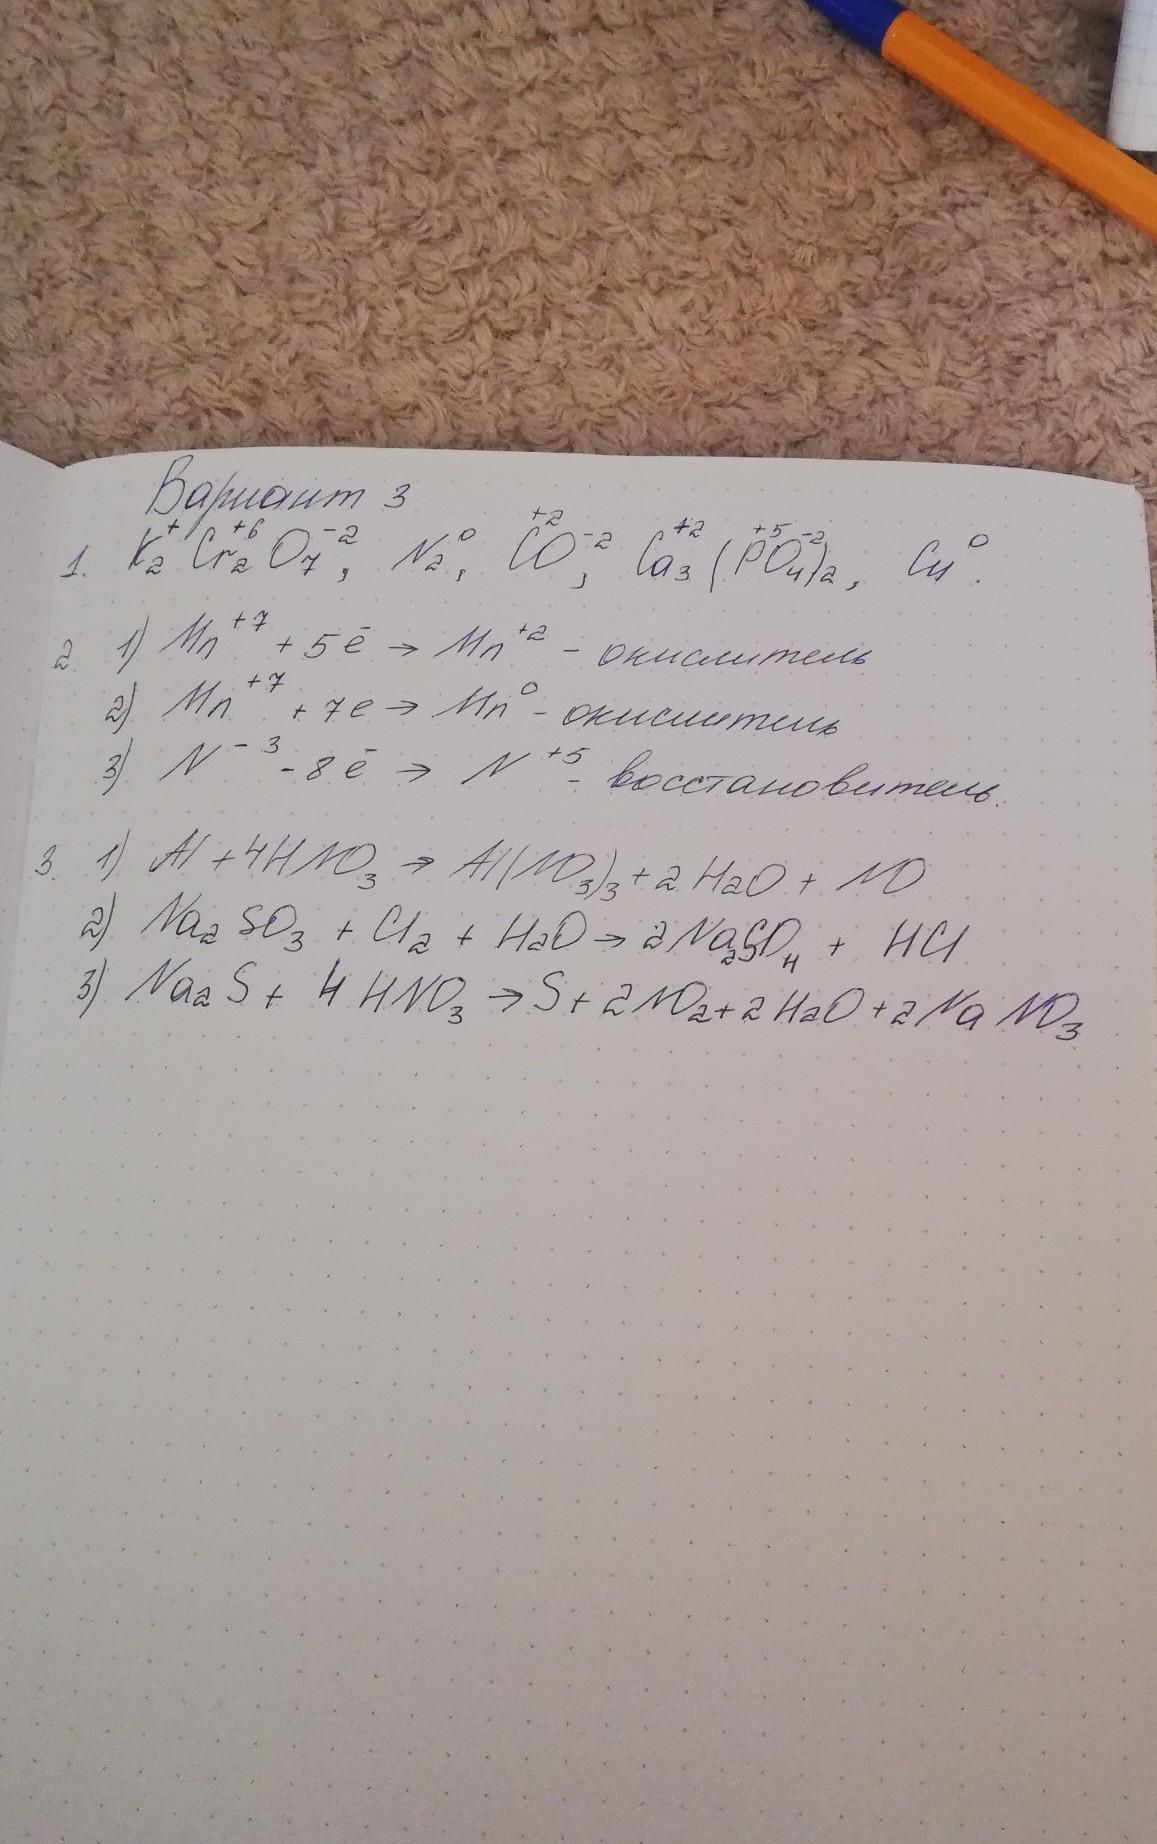 Вариант 3
1. K₂⁺Cr₂⁺⁶O₇⁻², N₂⁰, C⁺²O⁻², Ca₃⁺²(P⁺⁵O₄⁻²)₂, Cu⁰.
2. 1) Mn⁺⁷ + 5ē → Mn⁺² - окислитель
2) Mn⁺⁷ + 7e → Mn⁰ - окислитель
3) N⁻³ - 8ē → N⁺⁵ - восстановитель.
3. 1) Al + 4HNO₃ → Al(NO₃)₃ + 2H₂O + NO
2) Na₂SO₃ + Cl₂ + H₂O → 2Na₂SO₄ + HCl
3) Na₂S + 4HNO₃ → S + 2NO₂ + 2H₂O + 2NaNO₃